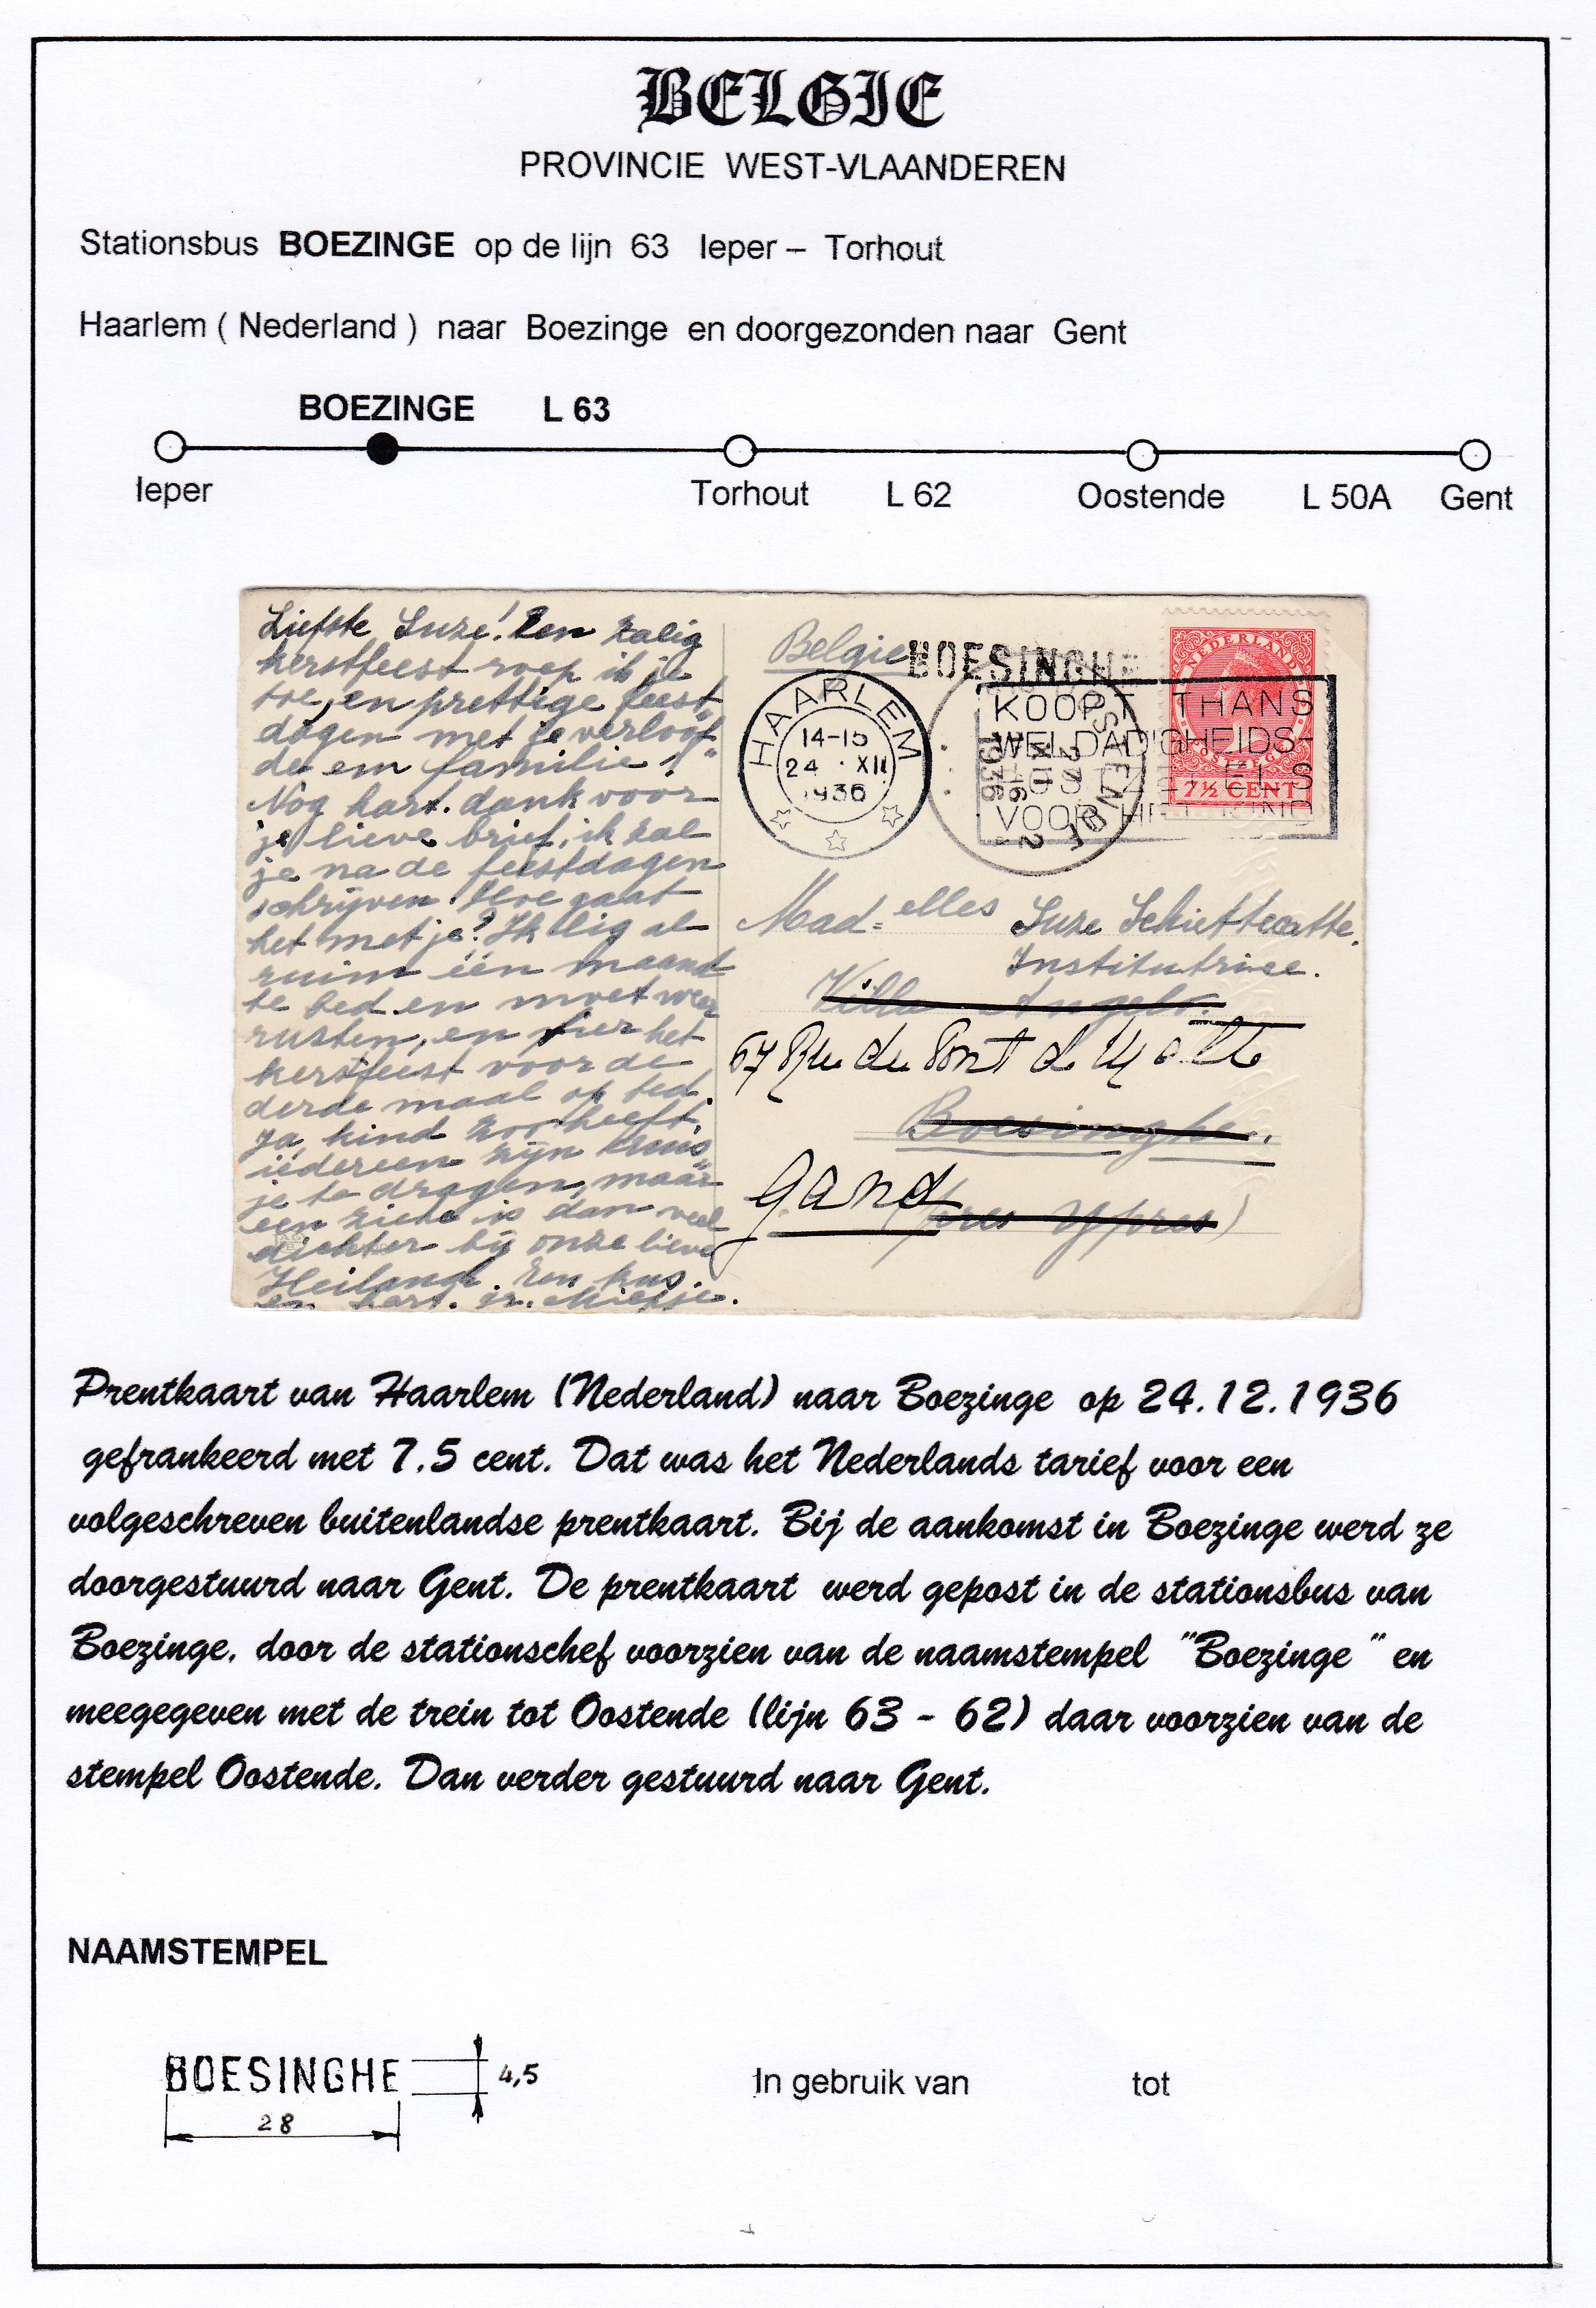 BELGIE
PROVINCIE WEST-VLAANDEREN
Stationsbus BOEZINGE op de lijn 63 Ieper – Torhout
Haarlem ( Nederland ) naar Boezinge en doorgezonden naar Gent
BOEZINGE L 63
Ieper Torhout L 62 Oostende L 50A Gent
Liefste Suze! Een zalig
kerstfeest roep ik je
toe, en prettige feest
dagen met je verloof
de em familie!
Nog hart. dank voor
je lieve brief, ik zal
je na de feestdagen
schrijven. Hoe gaat
het met je? Ik lig al
ruim één maand
te bed en moet weer
rusten, en vier het
kerstfeest voor de
derde maal op bed.
Ja, kind zoo heeft
iedereen zijn kruis
je te dragen, maar
een zieke is dan veel
dichter bij onze lieve
Heiland. Een kus
en hart. gr. Miepje.
Belgie
BOESINGHE
NEDERLAND
7½ CENT
HAARLEM
14-15
24 XII
1936
KOOPT THANS
WELDADIGHEIDS-
POSTZEGELS
VOOR HET KIND
1936
Mad=elles Suze Schiettecatte.
Institutrice.
Villa Angelo.
67 Rue du Pont d
Boesinghe.
Gand (près Ypres)
Prentkaart van Haarlem (Nederland) naar Boezinge op 24.12.1936
gefrankeerd met 7.5 cent. Dat was het Nederlands tarief voor een
volgeschreven buitenlandse prentkaart. Bij de aankomst in Boezinge werd ze
doorgestuurd naar Gent. De prentkaart werd gepost in de stationsbus van
Boezinge, door de stationschef voorzien van de naamstempel "Boezinge " en
meegegeven met de trein tot Oostende (lijn 63 - 62) daar voorzien van de
stempel Oostende. Dan verder gestuurd naar Gent.
NAAMSTEMPEL
BOESINGHE 4,5
28
In gebruik van tot